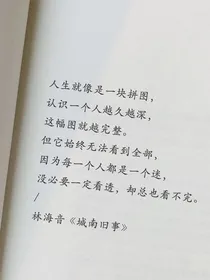 人生就像是一块拼图，
认识一个人越久越深，
这幅图就越完整。
但它始终无法看到全部，
因为每一个人都是一个迷，
没必要一定看透，却总也看不完。
/
林海音《城南旧事》